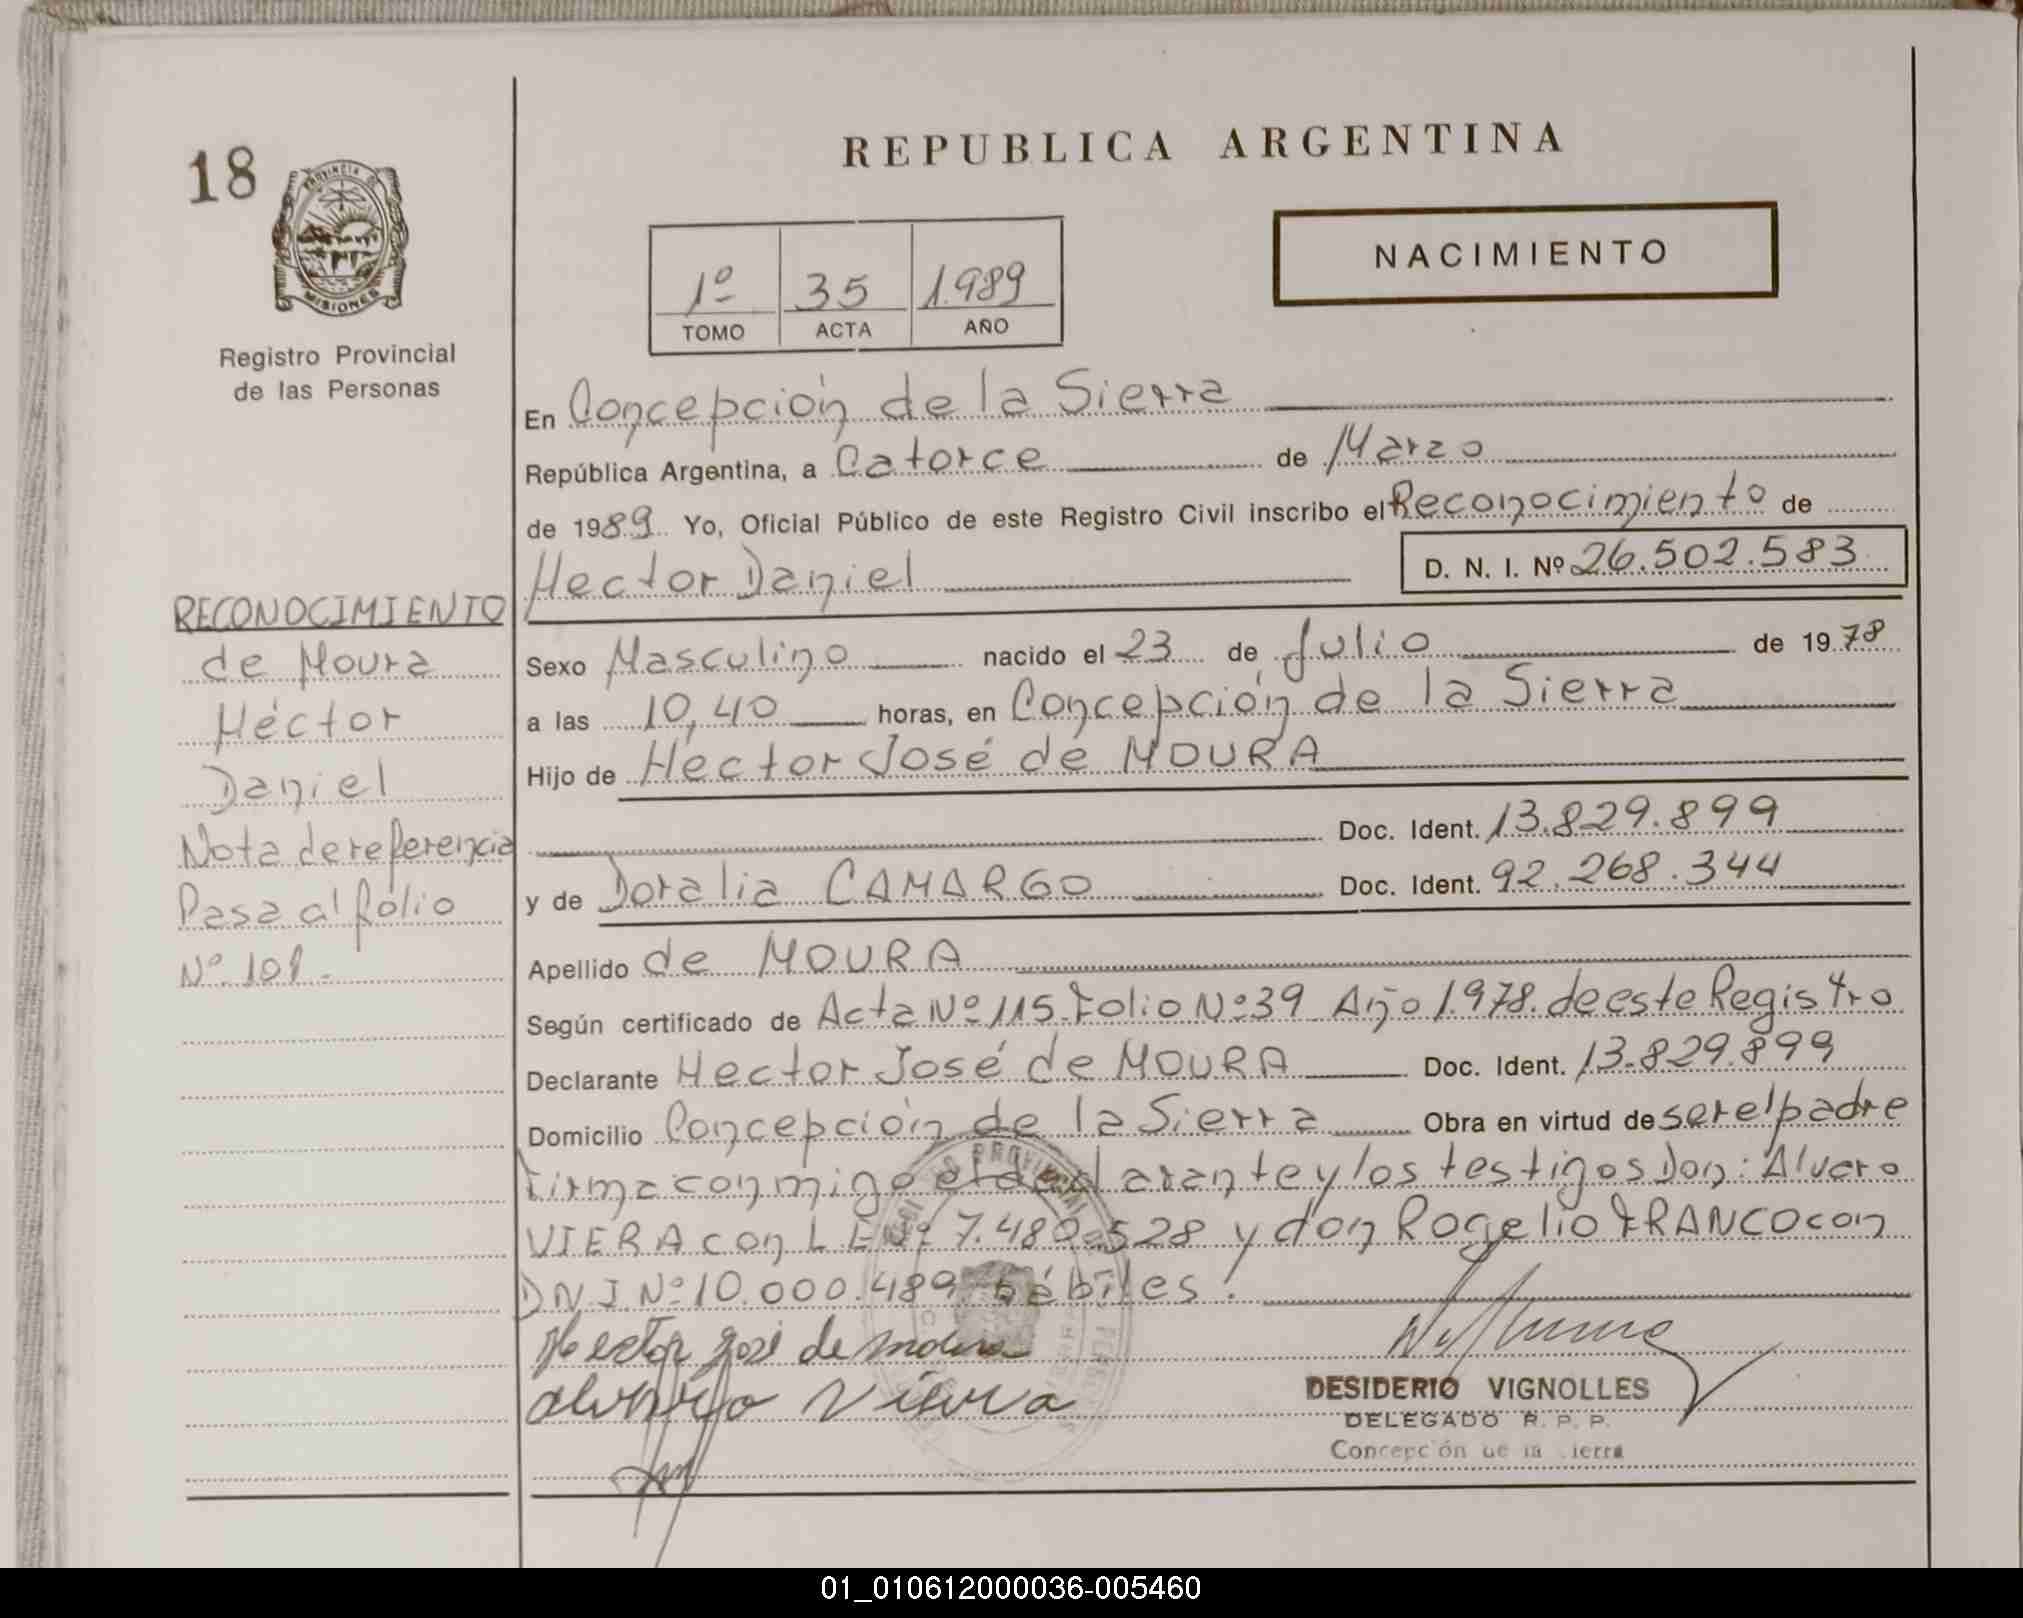 18
PROVINCIA DE
MISIONES
Registro Provincial
de las Personas
REPUBLICA ARGENTINA
NACIMIENTO
1º 35 1.989
TOMO ACTA AÑO
En Concepción de la Sierra
República Argentina, a Catorce de Marzo
de 1989 Yo, Oficial Público de este Registro Civil inscribo el Reconocimiento de
Hector Daniel D. N. I. Nº 26.502.583
Sexo Masculino nacido el 23 de Julio de 1978
a las 10,40 horas, en Concepción de la Sierra
Hijo de Hector José de MOURA
Doc. Ident. 13.829.899
y de Doralia CAMARGO Doc. Ident. 92.268.344
Apellido de MOURA
Según certificado de Acta Nº 115 Folio Nº 39 Año 1.978. de este Registro
Declarante Hector José de MOURA Doc. Ident. 13.829.899
Domicilio Concepción de la Sierra Obra en virtud de ser el padre
Firma conmigo el declarante y los testigos Don: Alvaro
VIERA con L E Nº 7.480.528 y don Rogelio FRANCO con
DNI Nº 10.000.489 hábiles.
Hector José de Moura
Alvaro Viera
DESIDERIO VIGNOLLES
DELEGADO R. P. P.
Concepción de la Sierra
RECONOCIMIENTO
de Moura
Héctor
Daniel
Nota de referencia
Pasa al fólio
Nº 101.-
01_010612000036-005460